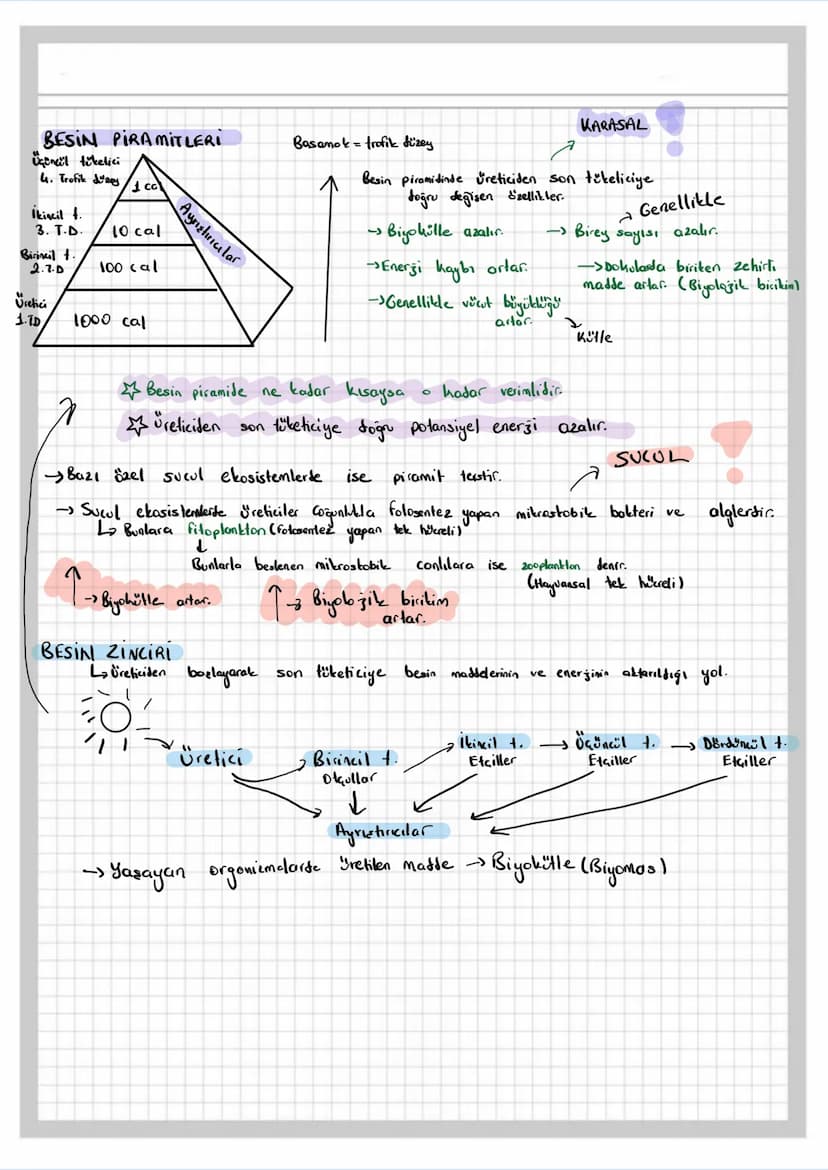 BESİN PİRAMİTLERİ
Üçüncül tüketici
4. Trofik düzey
1 cal
İkincil t.
3. T.D.
10 cal
Birincil t.
2.T.D
100 cal
Üretici
1.TD
1000 cal
Ayrıştırıcılar
Basamak = trofik düzey
KARASAL !
Besin piramidinde üreticiden son tüketiciye
doğru değişen özellikler.
→ Biyokütle azalır.
→ Enerji kaybı artar.
→ Genellikle vücut büyüklüğü
artar.
Kütle
Genellikle
→ Birey sayısı azalır.
→ Dokularda biriken zehirli
madde artar. (Biyolojik birikim)
☆ Besin piramide ne kadar kısaysa o kadar verimlidir.
☆ Üreticiden son tüketiciye doğru potansiyel enerji azalır.
SUCUL !
→ Bazı özel sucul ekosistemlerde ise piramit terstir.
→ Sucul ekosistemlerde üreticiler çoğunlukla fotosentez yapan mikroskobik bakteri ve alglerdir.
↳ Bunlara fitoplankton (fotosentez yapan tek hücreli)
↓
Bunlarla beslenen mikroskobik canlılara ise zooplankton denir.
(Hayvansal tek hücreli)
↑ → Biyokütle artar.
↑ → Biyolojik birikim
artar.
BESİN ZİNCİRİ
↳ Üreticiden başlayarak son tüketiciye besin maddelerinin ve enerjinin aktarıldığı yol.
Üretici
Birincil t.
Otçullar
İkincil t.
Etçiller
→ Üçüncül t.
Etçiller
→ Dördüncül t.
Etçiller
Ayrıştırıcılar
→ Yaşayan organizmalarda üretilen madde → Biyokütle (Biyomas)